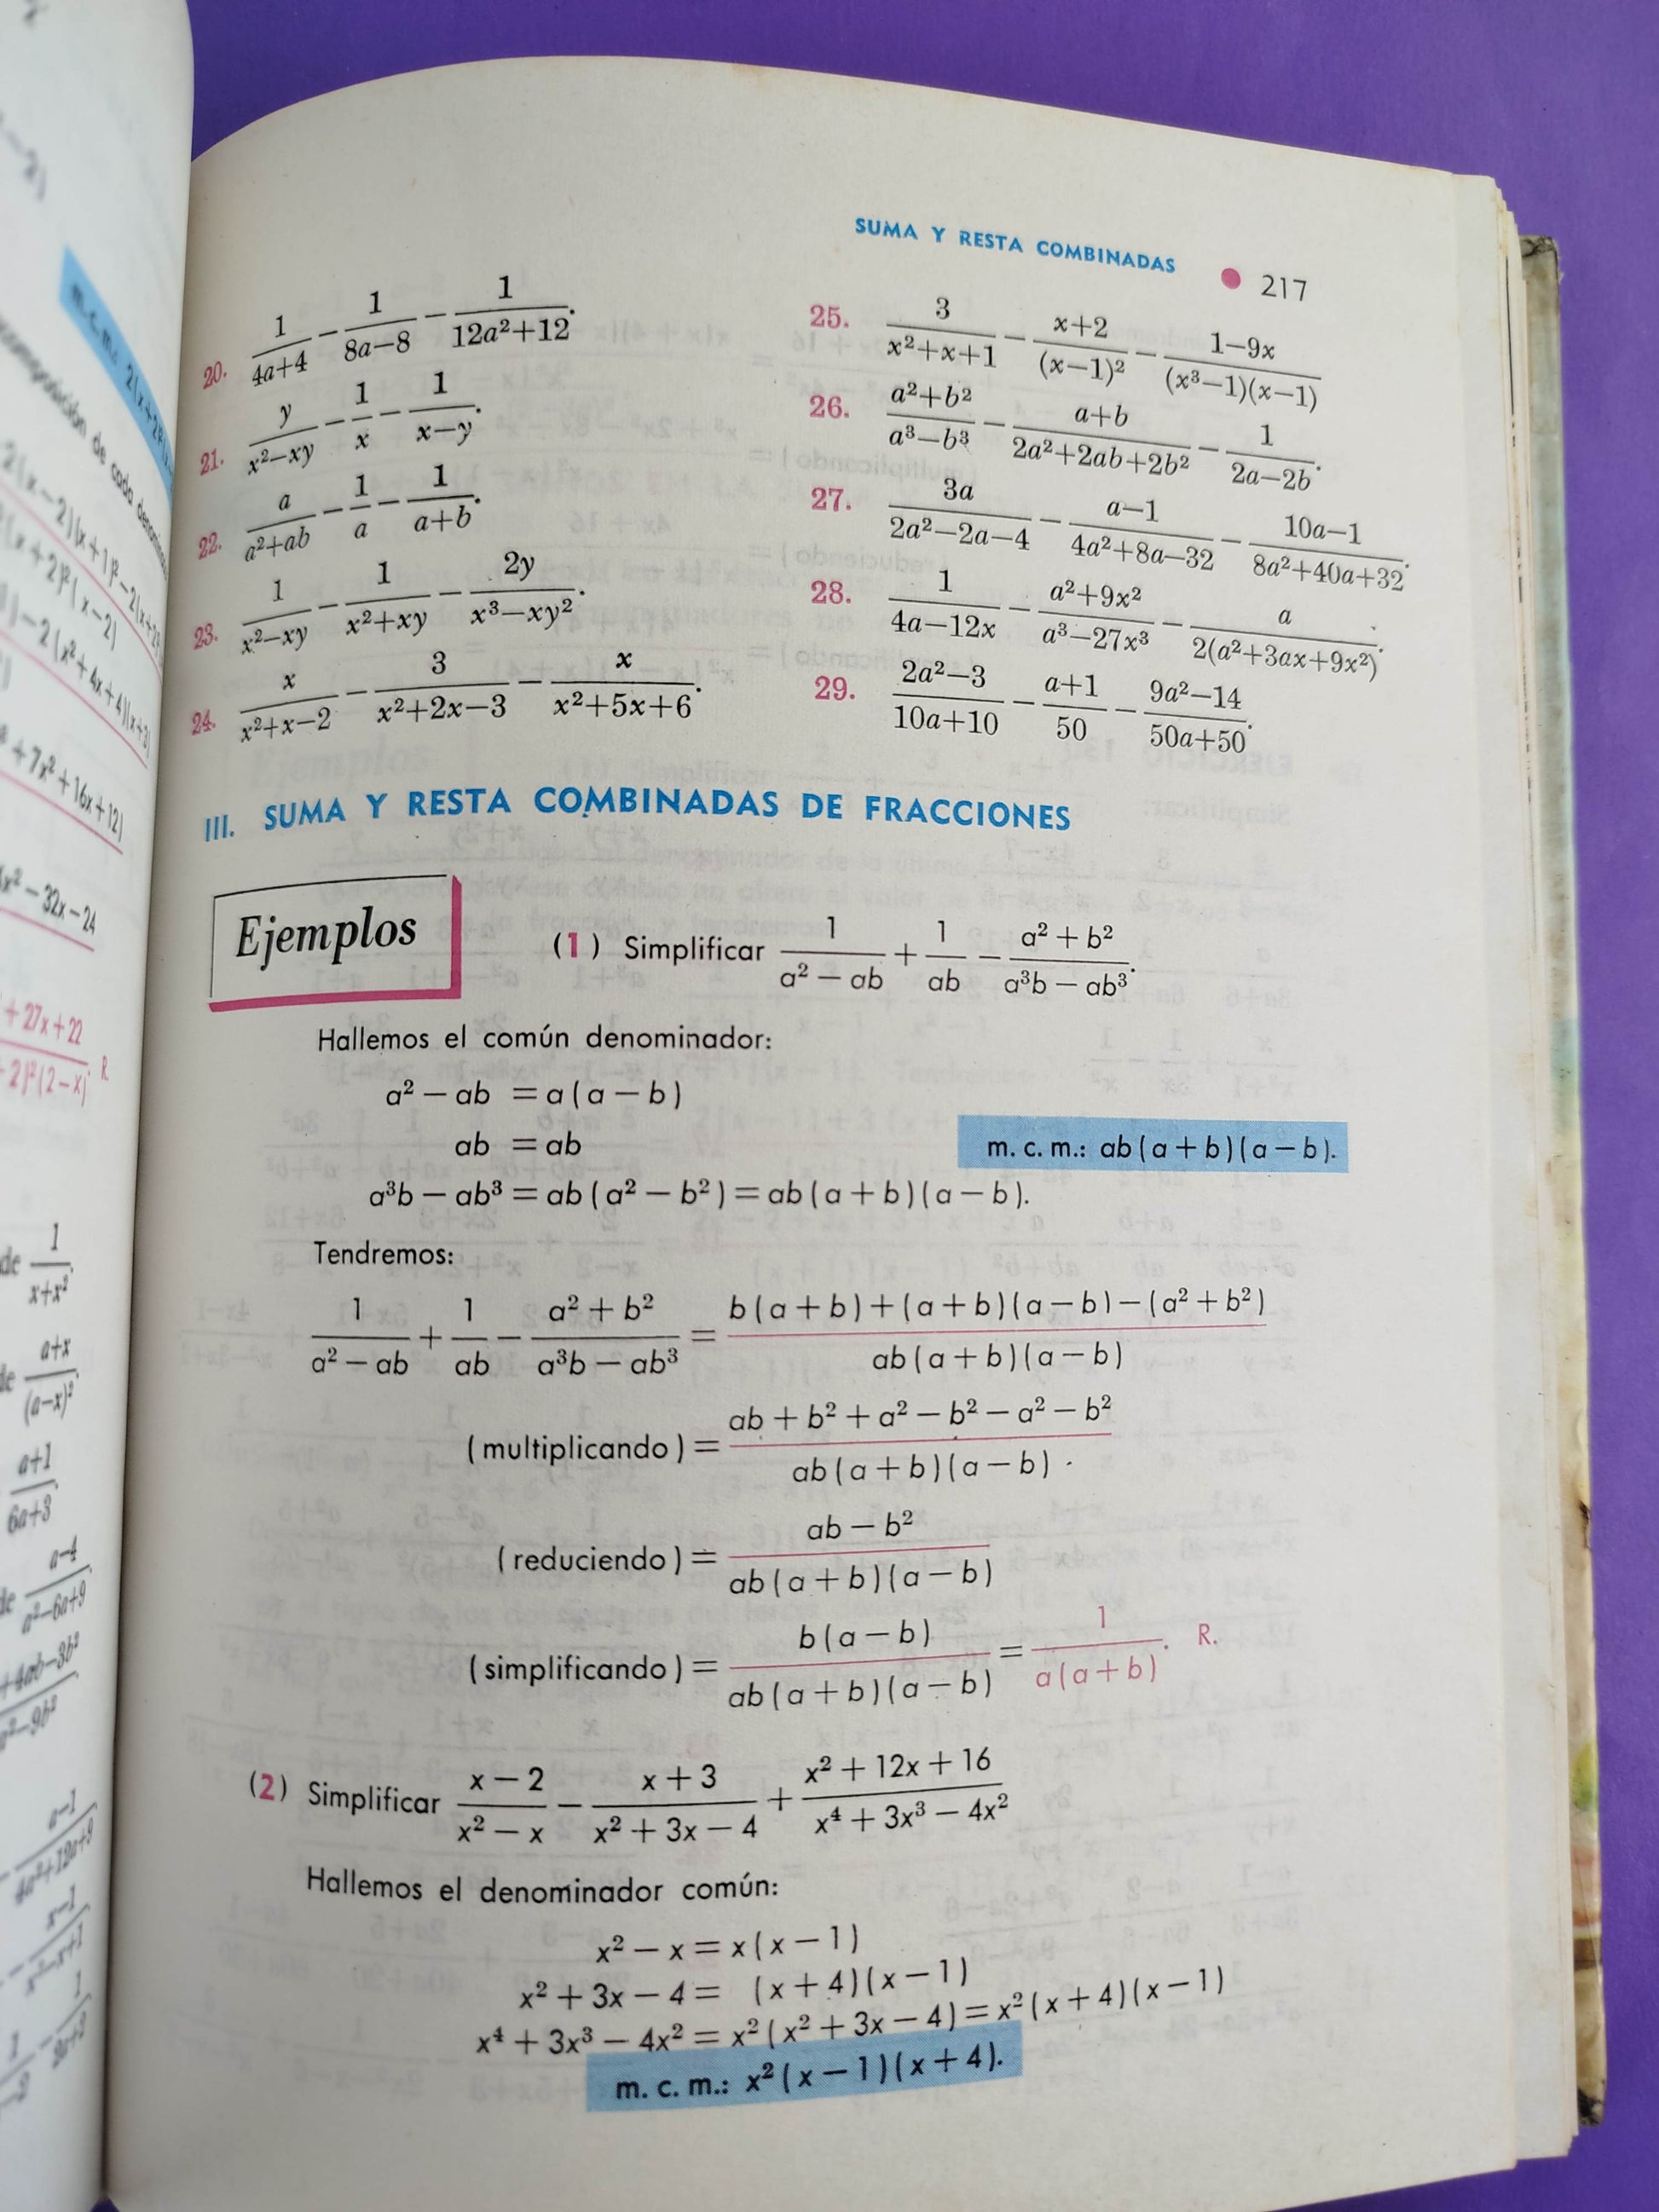 SUMA Y RESTA COMBINADAS ● 217
20. 1/(4a+4) − 1/(8a−8) − 1/(12a²+12).
21. y/(x²−xy) − 1/x − 1/(x−y).
22. a/(a²+ab) − 1/a − 1/(a+b).
23. 1/(x²−xy) − 1/(x²+xy) − 2y/(x³−xy²).
24. x/(x²+x−2) − 3/(x²+2x−3) − x/(x²+5x+6).
25. 3/(x²+x+1) − (x+2)/(x−1)² − (1−9x)/((x³−1)(x−1))
26. (a²+b²)/(a³−b³) − (a+b)/(2a²+2ab+2b²) − 1/(2a−2b).
27. 3a/(2a²−2a−4) − (a−1)/(4a²+8a−32) − (10a−1)/(8a²+40a+32).
28. 1/(4a−12x) − (a²+9x²)/(a³−27x³) − a/(2(a²+3ax+9x²)).
29. (2a²−3)/(10a+10) − (a+1)/50 − (9a²−14)/(50a+50).
III. SUMA Y RESTA COMBINADAS DE FRACCIONES
Ejemplos
(1) Simplificar 1/(a² − ab) + 1/ab − (a² + b²)/(a³b − ab³).
Hallemos el común denominador:
a² − ab = a(a − b)
ab = ab
m. c. m.: ab(a + b)(a − b).
a³b − ab³ = ab(a² − b²) = ab(a + b)(a − b).
Tendremos:
1/(a² − ab) + 1/ab − (a² + b²)/(a³b − ab³) = (b(a + b) + (a + b)(a − b) − (a² + b²))/(ab(a + b)(a − b))
(multiplicando) = (ab + b² + a² − b² − a² − b²)/(ab(a + b)(a − b))
(reduciendo) = (ab − b²)/(ab(a + b)(a − b))
(simplificando) = b(a − b)/(ab(a + b)(a − b)) = 1/(a(a + b)). R.
(2) Simplificar (x − 2)/(x² − x) − (x + 3)/(x² + 3x − 4) + (x² + 12x + 16)/(x⁴ + 3x³ − 4x²)
Hallemos el denominador común:
x² − x = x(x − 1)
x² + 3x − 4 = (x + 4)(x − 1)
x⁴ + 3x³ − 4x² = x²(x² + 3x − 4) = x²(x + 4)(x − 1)
m. c. m.: x²(x − 1)(x + 4).